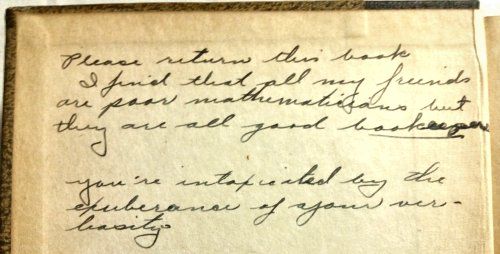 Please return this book
I find that all my friends
are poor mathematicians but
they are all good bookeepers
you're intoxicated by the
exuberance of your ver-
bosity